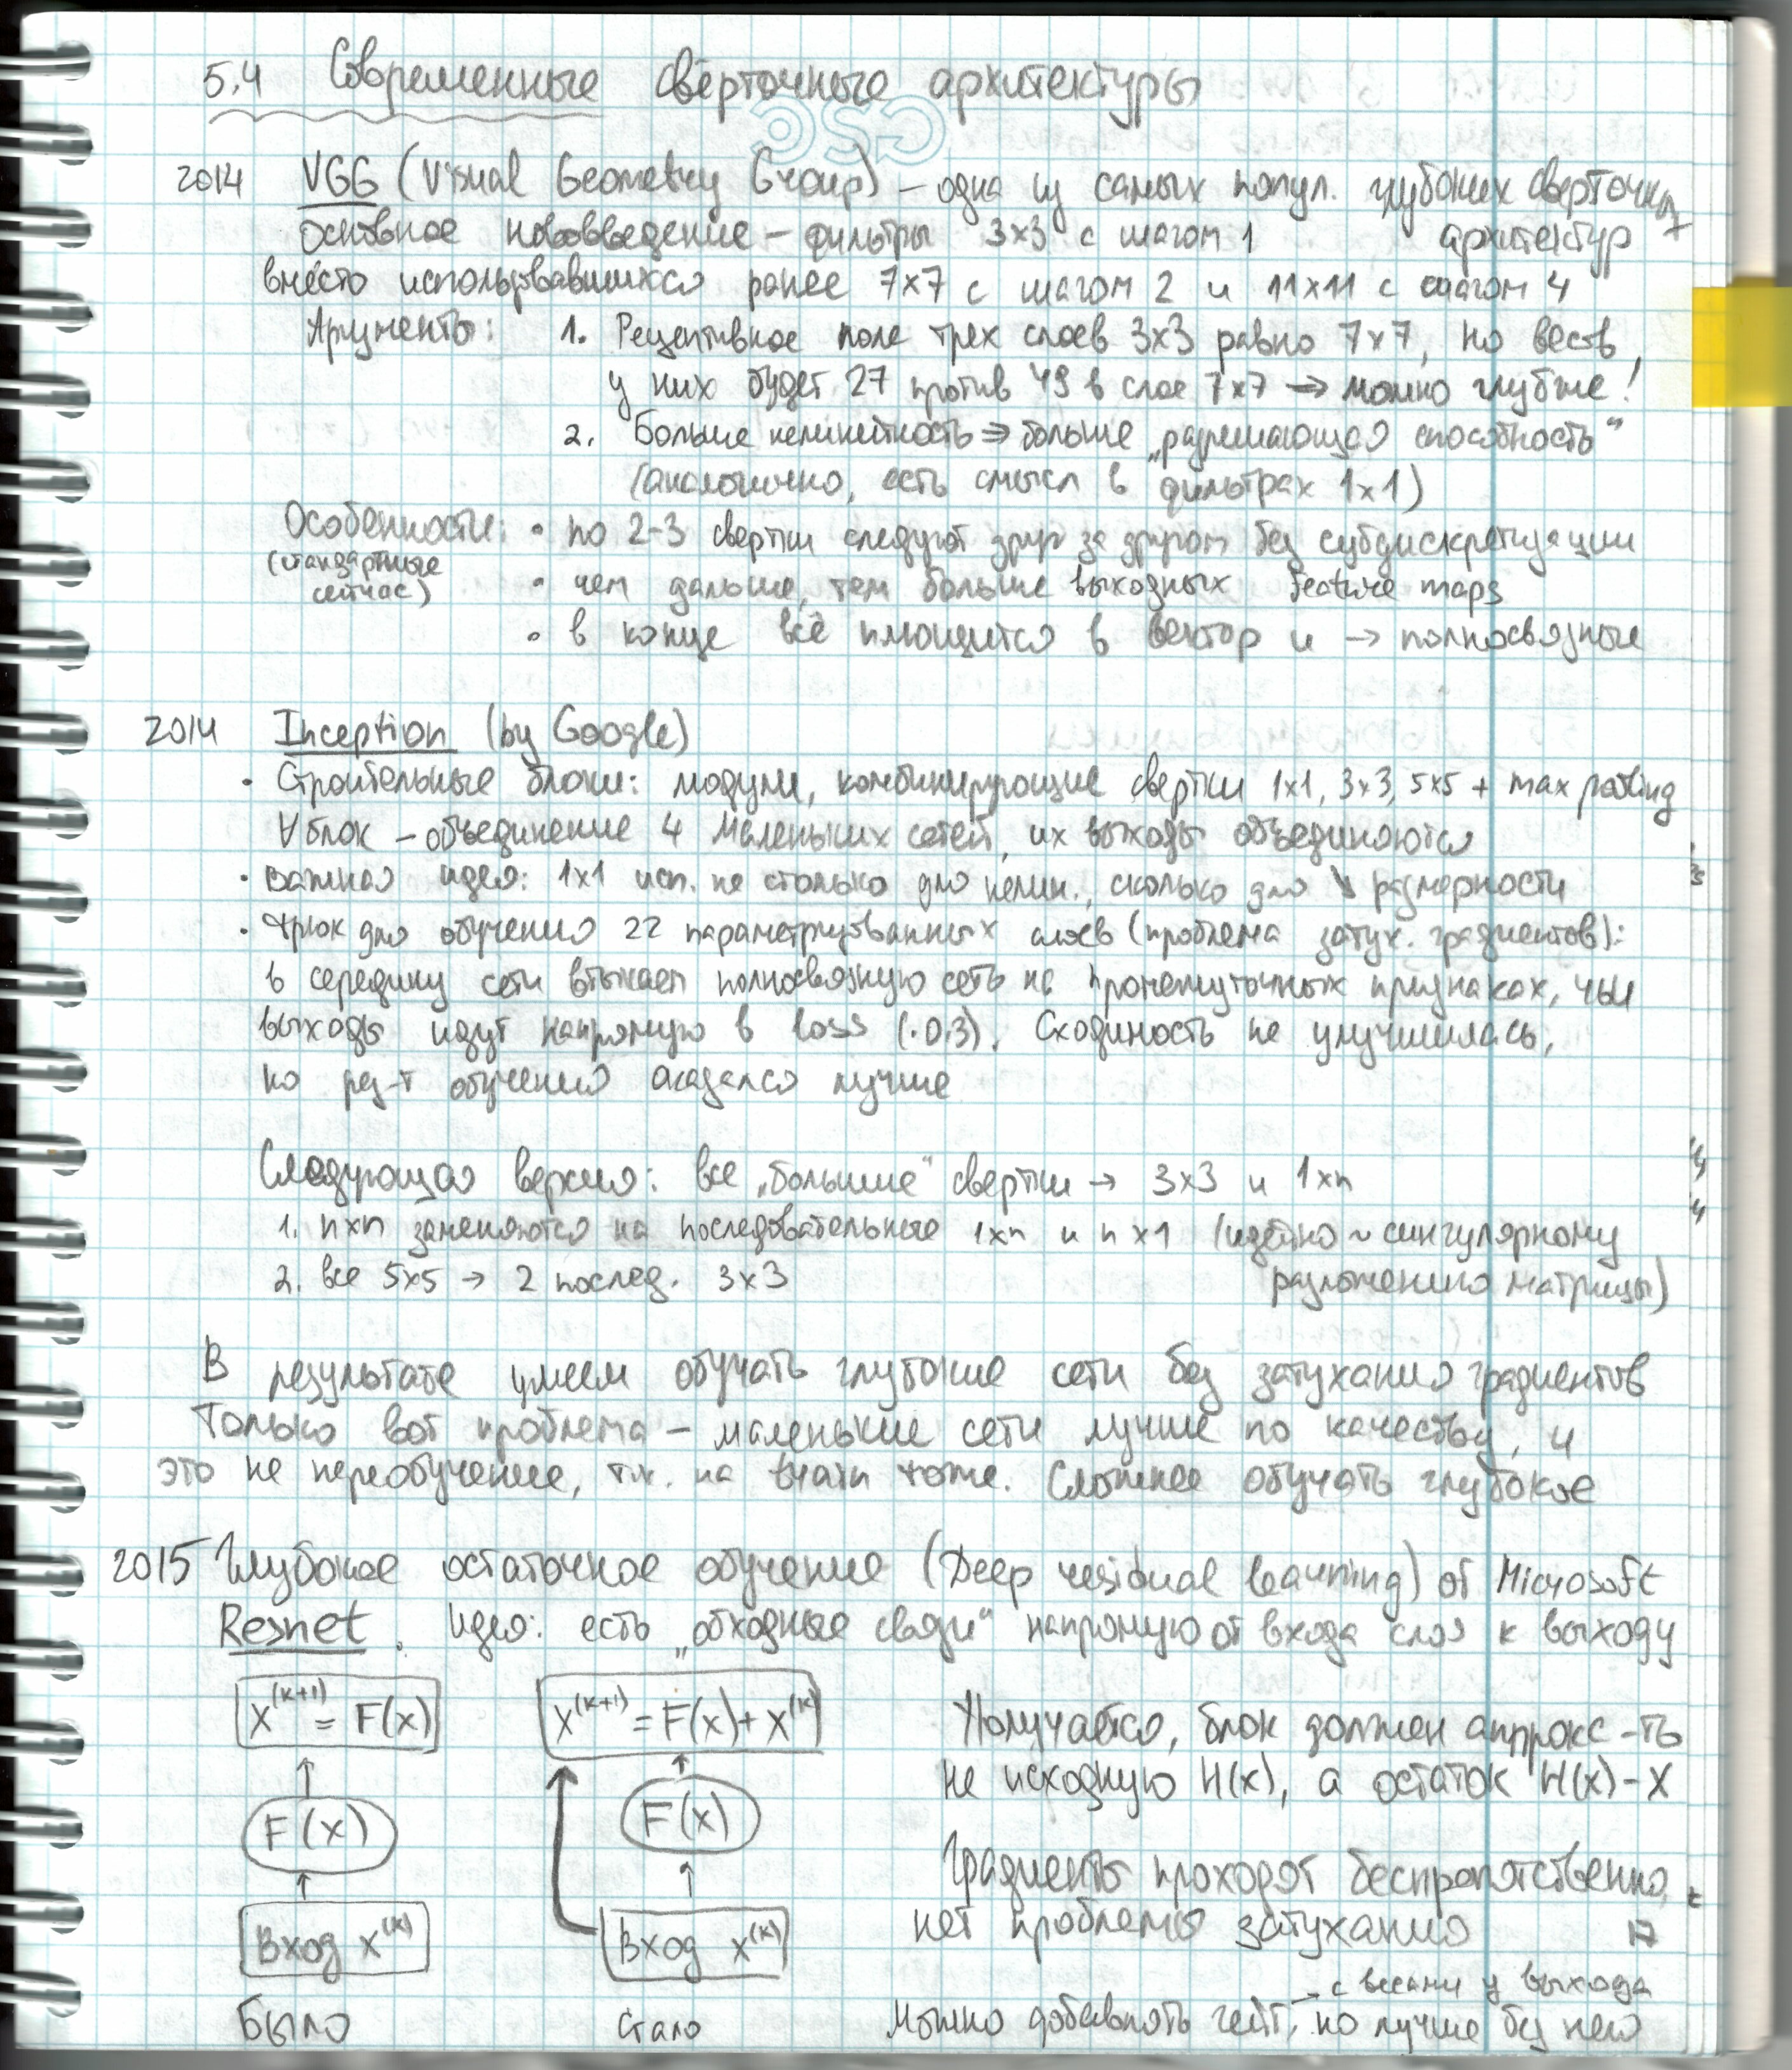 5.4 Современные свёрточные архитектуры
CSC
2014 VGG (Visual Geometry Group) – одна из самых попул. глубоких сверточных
архитектур
Основное нововведение – фильтры 3x3 с шагом 1
вместо использовавшихся ранее 7x7 с шагом 2 и 11x11 с шагом 4
Аргументы: 1. Рецептивное поле трех слоев 3x3 равно 7x7, но весов
у них будет 27 против 49 в слое 7x7 → можно глубже!
2. Больше нелинейность ⇒ больше „разрешающая способность“
(аналогично, есть смысл в фильтрах 1x1)
Особенности: • по 2-3 свертки следуют друг за другом без субдискретизации
(стандартные сейчас) • чем дальше, тем больше выходных feature maps
• в конце всё плющится в вектор и → полносвязные
2014 Inception (by Google)
• Строительные блоки: модули, комбинирующие свертки 1x1, 3x3, 5x5 + max pooling
∀ блок – объединение 4 маленьких сетей, их выходы объединяются
• важная идея: 1x1 исп. не столько для нелин., сколько для ↘ размерности
• трюк для обучения 22 параметризованных слоев (проблема затух. градиентов):
в середину сети втыкаем полносвязную сеть на промежуточных признаках, чьи
выходы идут напрямую в loss (·0.3). Сходимость не улучшилась,
но рез-т обучения оказался лучше
Следующая версия: все „большие“ свертки → 3x3 и 1xn
1. nxn заменяются на последовательные 1xn и nx1 (идейно ~ сингулярному
разложению матрицы)
2. все 5x5 → 2 послед. 3x3
В результате умеем обучать глубокие сети без затухания градиентов
Только вот проблема – маленькие сети лучше по качеству, и
это не переобучение, т.к. на train тоже. Сложнее обучать глубокое
2015 Глубокое остаточное обучение (Deep residual learning) от Microsoft
Resnet. Идея: есть „обходные связи“ напрямую от входа слоя к выходу
X^(k+1) = F(x)
X^(k+1) = F(x) + X^(k)
Получается, блок должен аппрокс-ть
не исходную H(x), а остаток H(x)-X
F(x)
F(x)
Градиенты проходят беспрепятственно,
нет проблемы затухания
Вход x^(k)
Вход x^(k)
→ с весами у выхода
Можно добавлять гейт, но лучше без него
Было
Стало